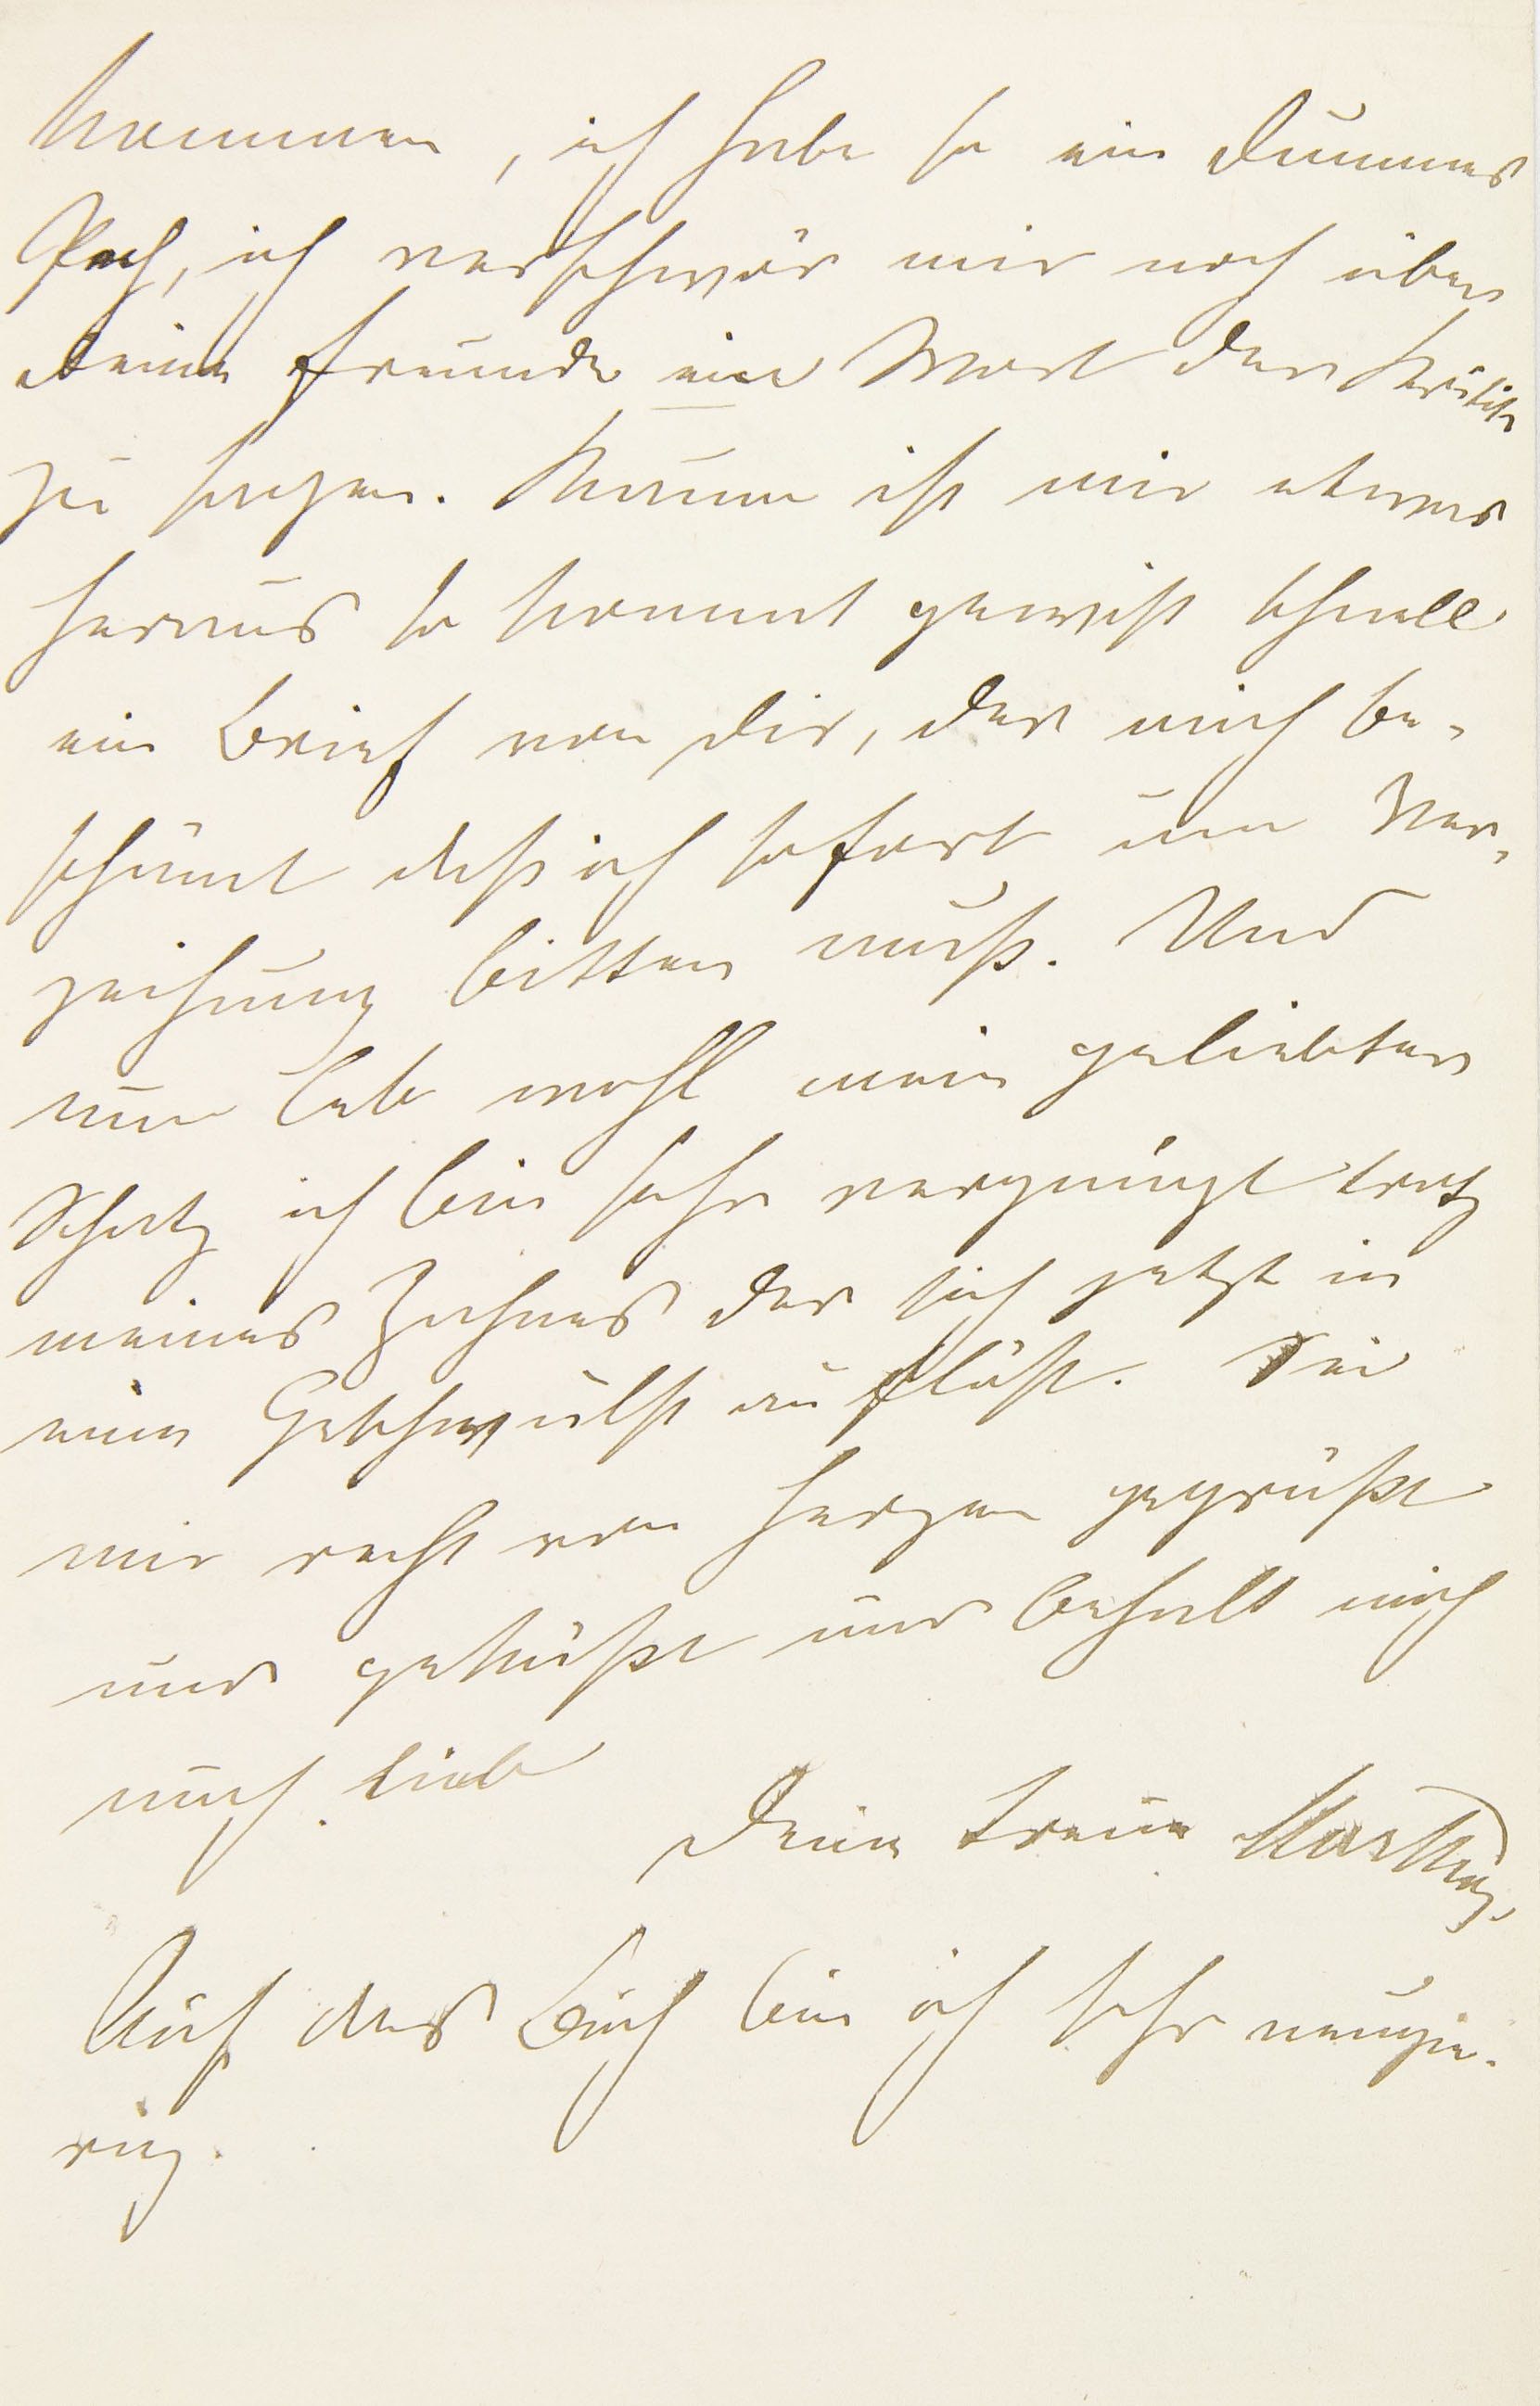 kommen, ich habe so ein dummes
Pech, ich verschwör mir noch über
Deine Freunde ein Wort der Kritik
zu sagen. Kaum ist mir etwas
heraus so kommt gewiß schnell
ein Brief von Dir, der mich be-
schämt daß ich sofort um Ver-
zeihung bitten muß. Und
nun leb wohl mein geliebter
Schatz ich bin sehr vergnügt trotz
meines Zahnes der sich jetzt in
eine Geschwulst auflöst. Sei
mir recht von Herzen gegrüßt
und geküßt und behalt mich
auch lieb
Deine treue Martha.
Auf das Buch bin ich sehr neugie-
rig.